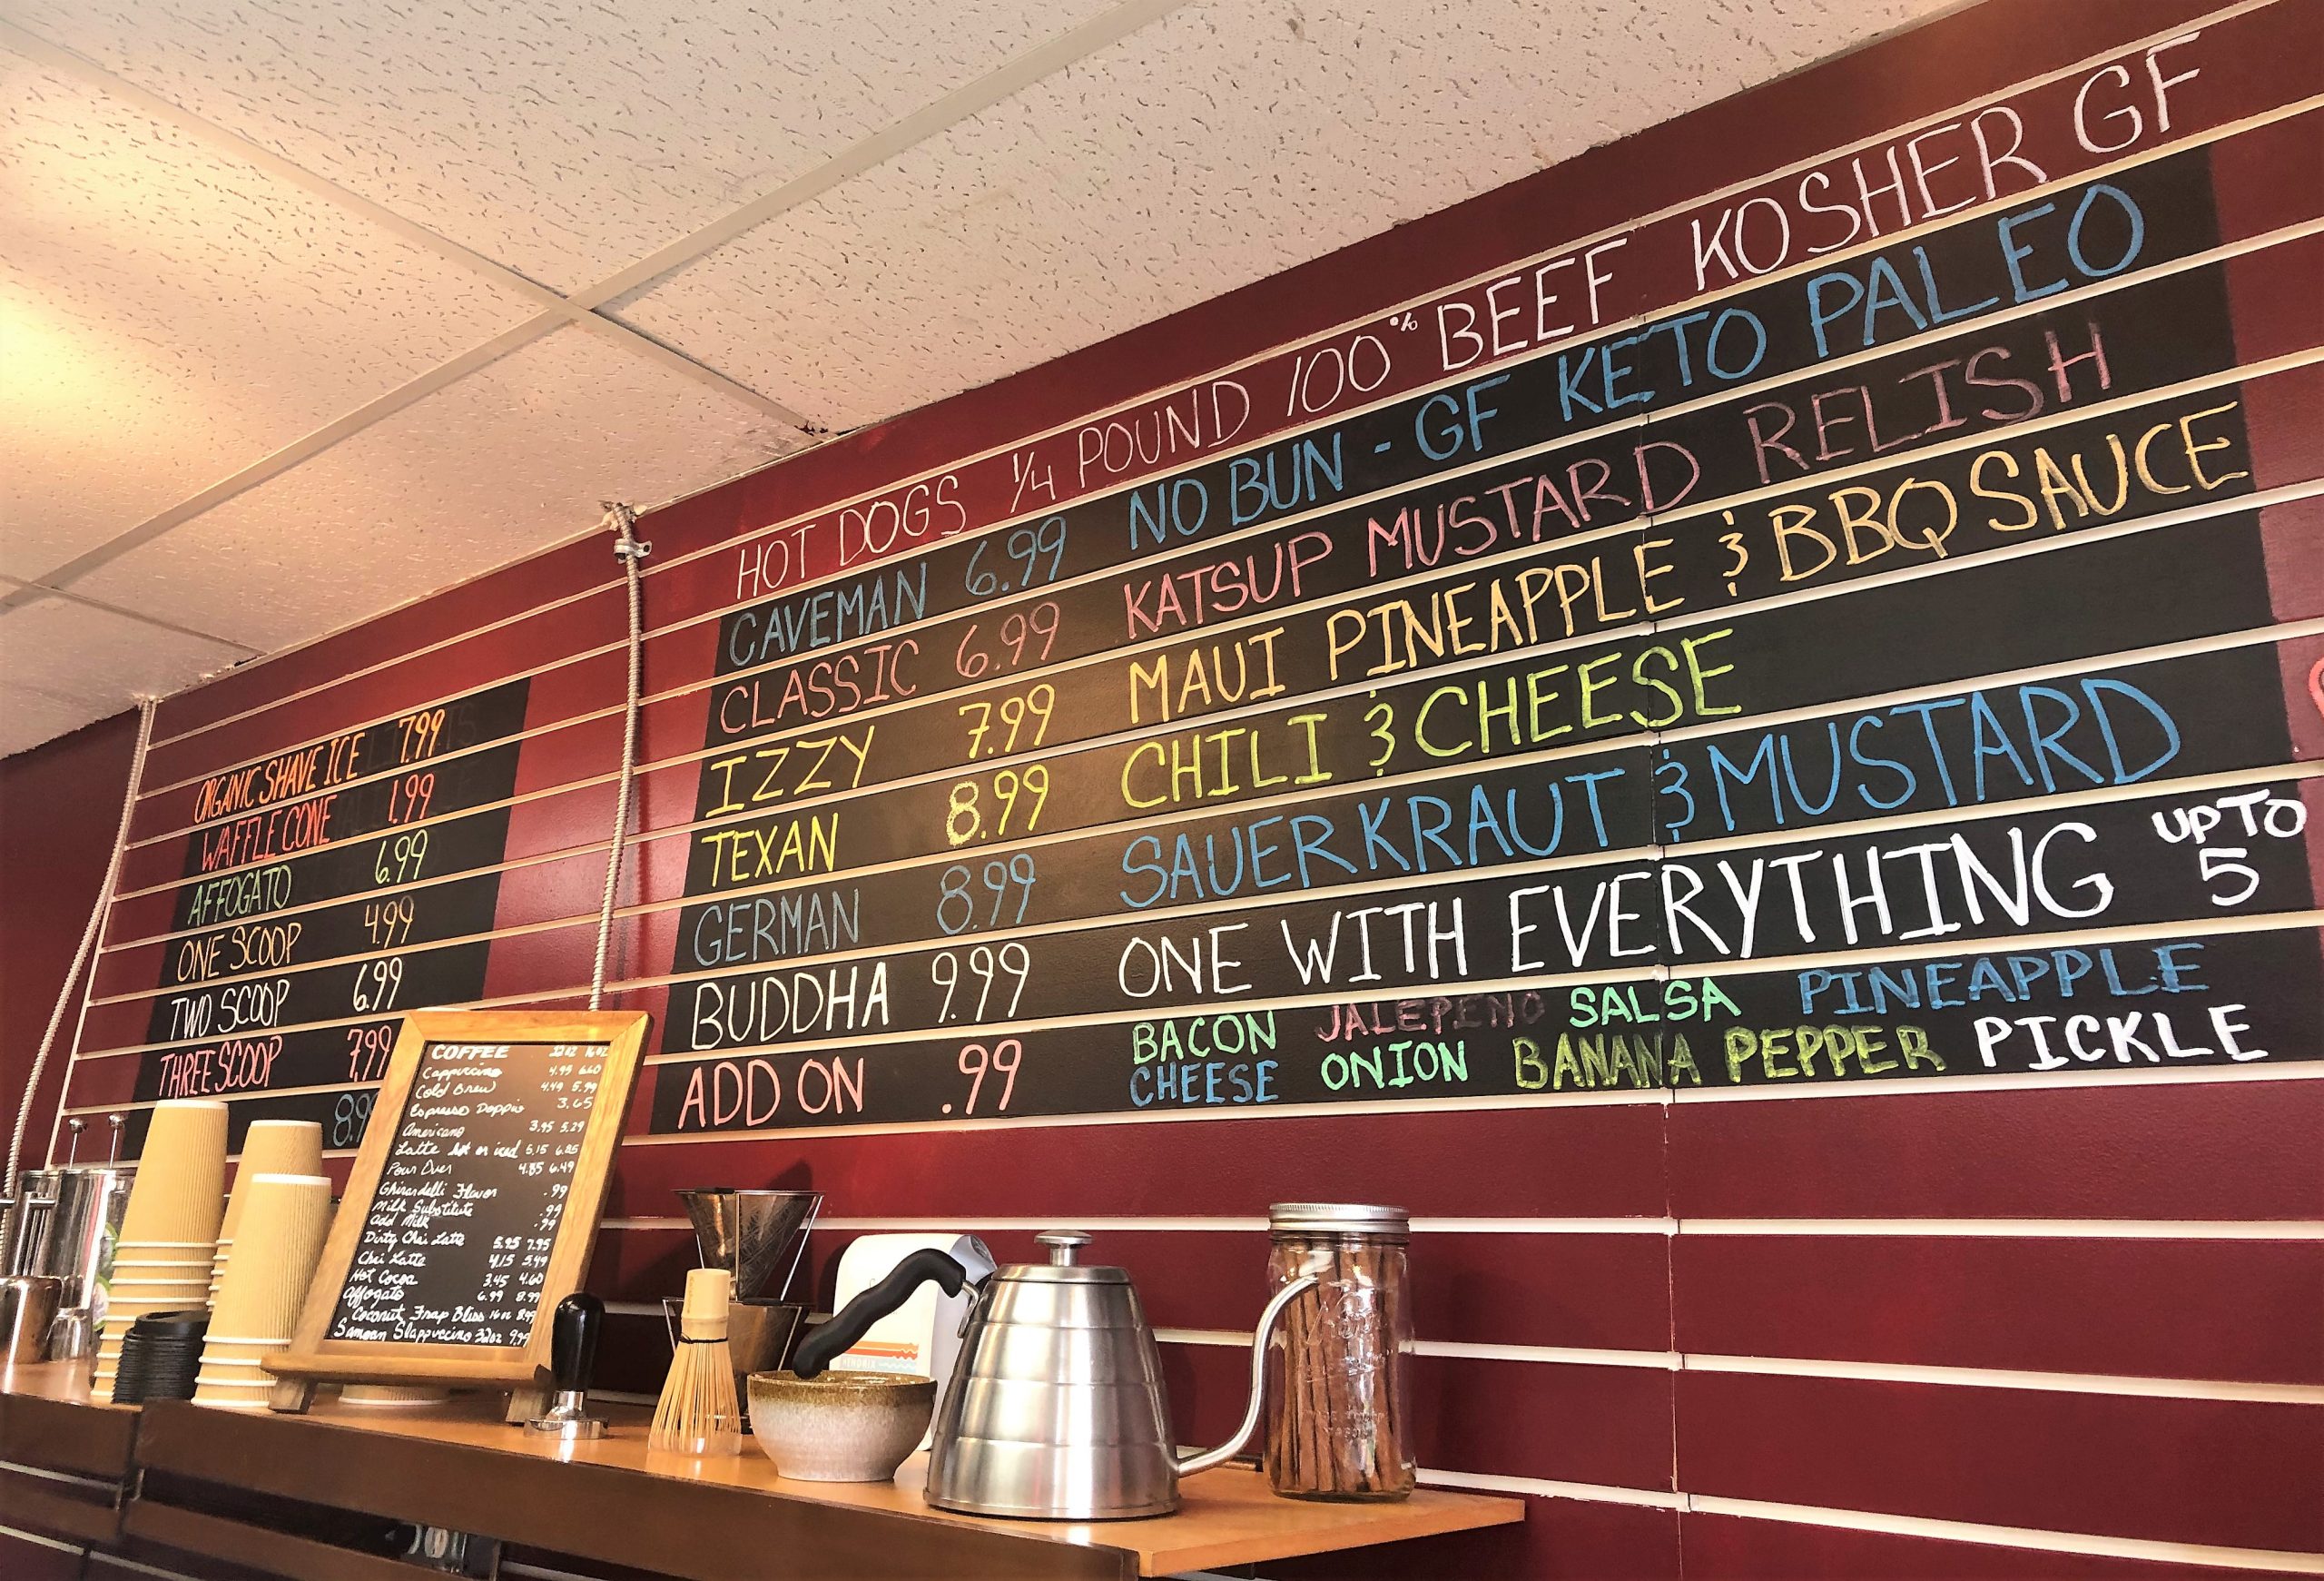 HOT DOGS 1/4 POUND 100% BEEF KOSHER GF
CAVEMAN 6.99 NO BUN - GF KETO PALEO
CLASSIC 6.99 KATSUP MUSTARD RELISH
IZZY 7.99 MAUI PINEAPPLE & BBQ SAUCE
TEXAN 8.99 CHILI & CHEESE
GERMAN 8.99 SAUERKRAUT & MUSTARD
BUDDHA 9.99 ONE WITH EVERYTHING UP TO 5
ADD ON .99 BACON JALEPENO SALSA PINEAPPLE
CHEESE ONION BANANA PEPPER PICKLE
ORGANIC SHAVE ICE 7.99
WAFFLE CONE 1.99
AFFOGATO 6.99
ONE SCOOP 4.99
TWO SCOOP 6.99
THREE SCOOP 7.99
COFFEE
Cappuccino 4.95 6.60
Cold Brew 4.49 5.99
Espresso Doppio 3.65
Americano 3.95 5.29
Latte hot or iced 5.15 6.85
Pour Over 4.85 6.49
Ghirardelli Flavor .99
Milk Substitute .99
Add Milk .99
Dirty Chai Latte 5.95 7.95
Chai Latte 4.15 5.49
Hot Cocoa 3.45 4.60
Affogato 6.99 8.99
Coconut Frap Bliss 16oz
Samoan Slappuccino 32oz 9.99